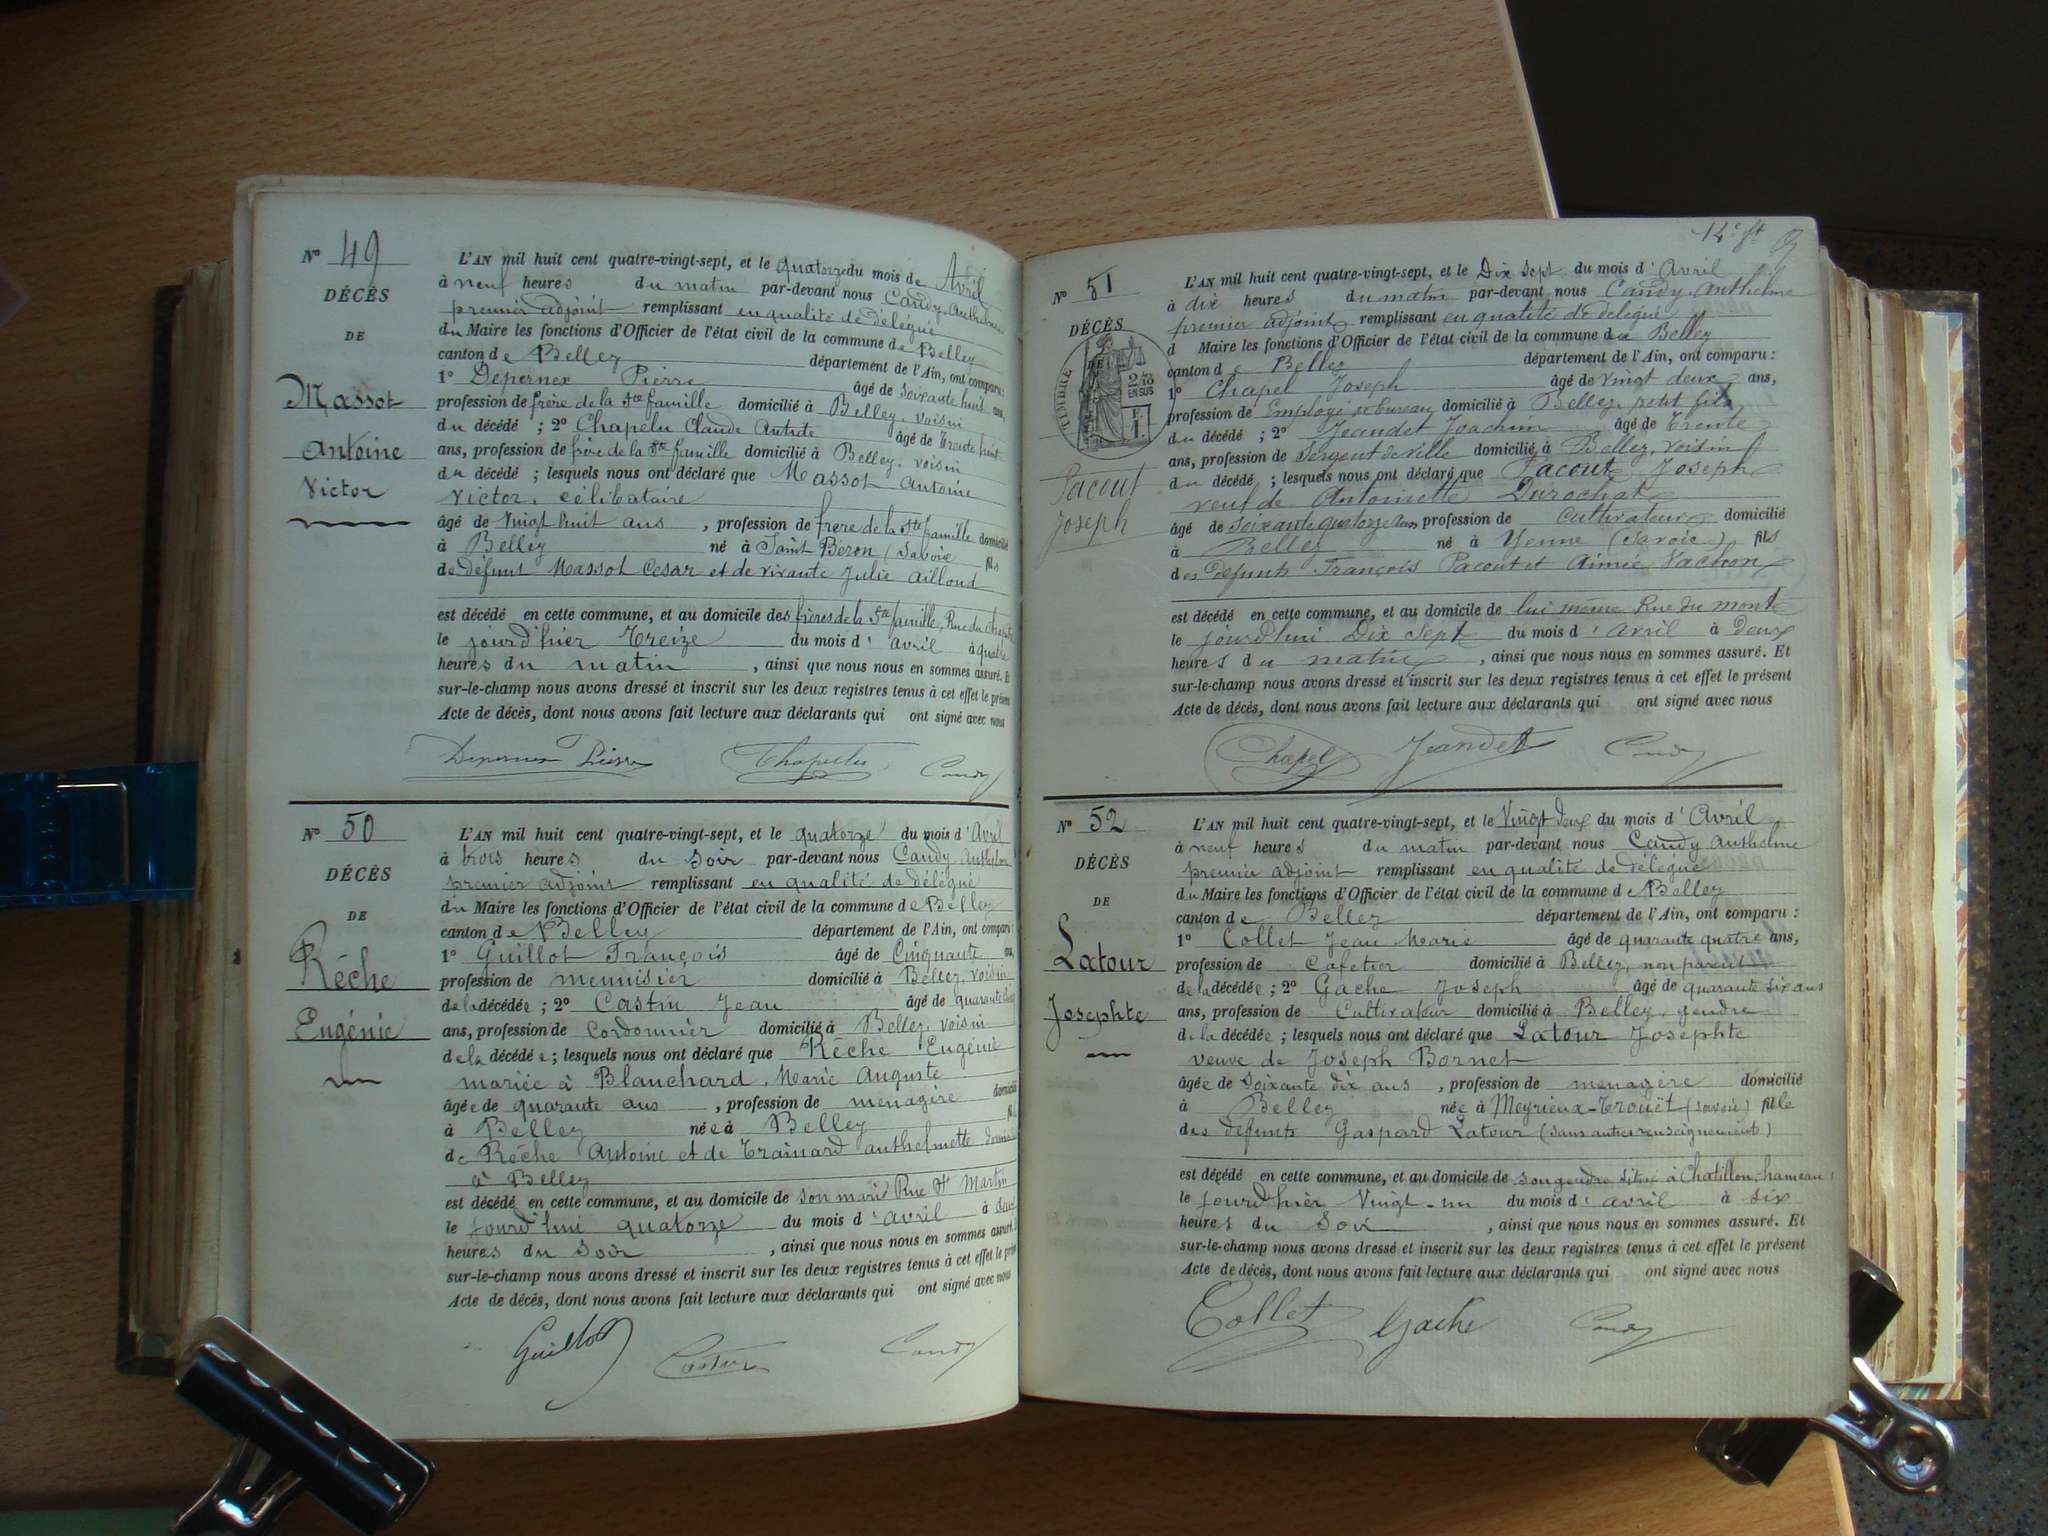 N° 49
DÉCÈS
DE
Massot
Antoine
Victor
L'AN mil huit cent quatre-vingt-sept, et le quatorze du mois de Avril
à neuf heures du matin par-devant nous Candy, Anthelme
premier adjoint remplissant en qualité de délégué
du Maire les fonctions d'Officier de l'état civil de la commune de Belley
canton de Belley département de l'Ain, ont comparu :
1° Depernex Pierre âgé de soixante huit ans,
profession de frère de la Ste famille domicilié à Belley, voisin
du décédé ; 2° Chapelu Claude âgé de trente huit
ans, profession de frère de la Ste famille domicilié à Belley, voisin
du décédé ; lesquels nous ont déclaré que Massot Antoine
Victor, célibataire
âgé de vingt huit ans , profession de frère de la Ste famille domicilié
à Belley né à Saint Béron (Savoie fils
de défunt Massot Cesar et de vivante Julie Ailloud
est décédé en cette commune, et au domicile des frères de la Ste famille, Rue du Chapitre
le jourd'hier treize du mois d'avril à quatre
heures du matin , ainsi que nous nous en sommes assuré. Et
sur-le-champ nous avons dressé et inscrit sur les deux registres tenus à cet effet le présent
Acte de décès, dont nous avons fait lecture aux déclarants qui ont signé avec nous
Depernex Pierre Chapelu Candy
N° 50
DÉCÈS
DE
Réche
Eugénie
L'AN mil huit cent quatre-vingt-sept, et le quatorze du mois d'Avril
à trois heures du soir par-devant nous Candy Anthelme
premier adjoint remplissant en qualité de délégué
du Maire les fonctions d'Officier de l'état civil de la commune de Belley
canton de Belley département de l'Ain, ont comparu :
1° Guillot François âgé de Cinquante ans,
profession de menuisier domicilié à Belley, voisin
de la décédée ; 2° Castin Jean âgé de quarante
ans, profession de Cordonnier domicilié à Belley, voisin
de la décédée ; lesquels nous ont déclaré que Réche Eugénie
mariée à Blanchard, Marie Auguste
âgée de quarante ans , profession de ménagère domicilié
à Belley née à Belley
de Réche Antoine et de Trainard anthelmette
à Belley
est décédé en cette commune, et au domicile de son mari Rue St Martin
le jourd'hui quatorze du mois d'avril à deux
heures du soir , ainsi que nous nous en sommes assuré.
sur-le-champ nous avons dressé et inscrit sur les deux registres tenus à cet effet le présent
Acte de décès, dont nous avons fait lecture aux déclarants qui ont signé avec nous
Guillot Castin Candy
14e ft
N° 51
DÉCÈS
DE
TIMBRE
2/10
EN SUS
F.
1.
Pacout
Joseph
L'AN mil huit cent quatre-vingt-sept, et le Dix sept du mois d'Avril
à dix heures du matin par-devant nous Candy Anthelme
premier adjoint remplissant en qualité de délégué
d Maire les fonctions d'Officier de l'état civil de la commune de Belley
canton de Belley département de l'Ain, ont comparu :
1° Chapel Joseph âgé de vingt deux ans,
profession de Employé de bureau domicilié à Belley, petit fils
du décédé ; 2° Jeandet Joachim âgé de trente
ans, profession de Sergent de ville domicilié à Belley, voisin
du décédé ; lesquels nous ont déclaré que Pacout Joseph
veuf de Antoinette Durochat
âgé de soixante quatorze ans profession de Cultivateur domicilié
à Belley né à Yenne (Savoie) fils
des défunts François Pacout et Aimée Vachon
est décédé en cette commune, et au domicile de lui même Rue du mont
le jourd'hui Dix Sept du mois d'avril à deux
heures du matin , ainsi que nous nous en sommes assuré. Et
sur-le-champ nous avons dressé et inscrit sur les deux registres tenus à cet effet le présent
Acte de décès, dont nous avons fait lecture aux déclarants qui ont signé avec nous
Chapel Jeandet Candy
N° 52
DÉCÈS
DE
Latour
Josephte
L'AN mil huit cent quatre-vingt-sept, et le Vingt deux du mois d'Avril
à neuf heures du matin par-devant nous Candy Anthelme
premier adjoint remplissant en qualité de délégué
du Maire les fonctions d'Officier de l'état civil de la commune de Belley
canton de Belley département de l'Ain, ont comparu :
1° Collet Jean Marie âgé de quarante quatre ans,
profession de Cafetier domicilié à Belley, non parent
de la décédée ; 2° Gache Joseph âgé de quarante six ans
ans, profession de Cultivateur domicilié à Belley, gendre
de la décédée ; lesquels nous ont déclaré que Latour Josephte
veuve de Joseph Bornet
âgée de soixante dix ans , profession de ménagère domicilié
à Belley née à Meyrieux-Trouët (Savoie) fille
des défunts Gaspard Latour (sans autres renseignements)
est décédé en cette commune, et au domicile de son gendre situé à Chatillon, hameau
le jourd'hier Vingt-un du mois d'avril à six
heures du Soir , ainsi que nous nous en sommes assuré. Et
sur-le-champ nous avons dressé et inscrit sur les deux registres tenus à cet effet le présent
Acte de décès, dont nous avons fait lecture aux déclarants qui ont signé avec nous
Collet Gache Candy